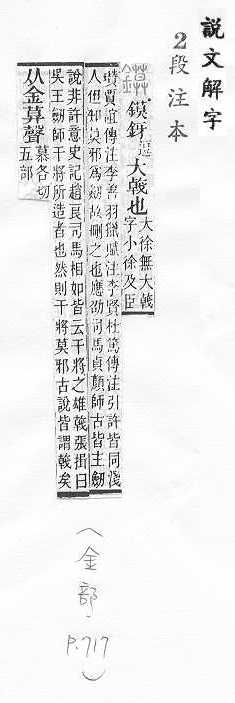 說文解字
2段注本
鏌釾逗大戟也
大徐無大戟
字小徐及臣
瓚賈誼傳注李善羽獵賦注李賢杜篤傳注引許皆同淺
人但知莫邪爲劒故刪之也應劭司馬貞顏師古皆主劒
說非許意史記趙良司馬相如皆云干將之雄戟張揖曰
吳王劒師干將所造者也然則干將莫邪古說皆謂戟矣
从金莫聲
慕各切
五部
(金部, P.717)